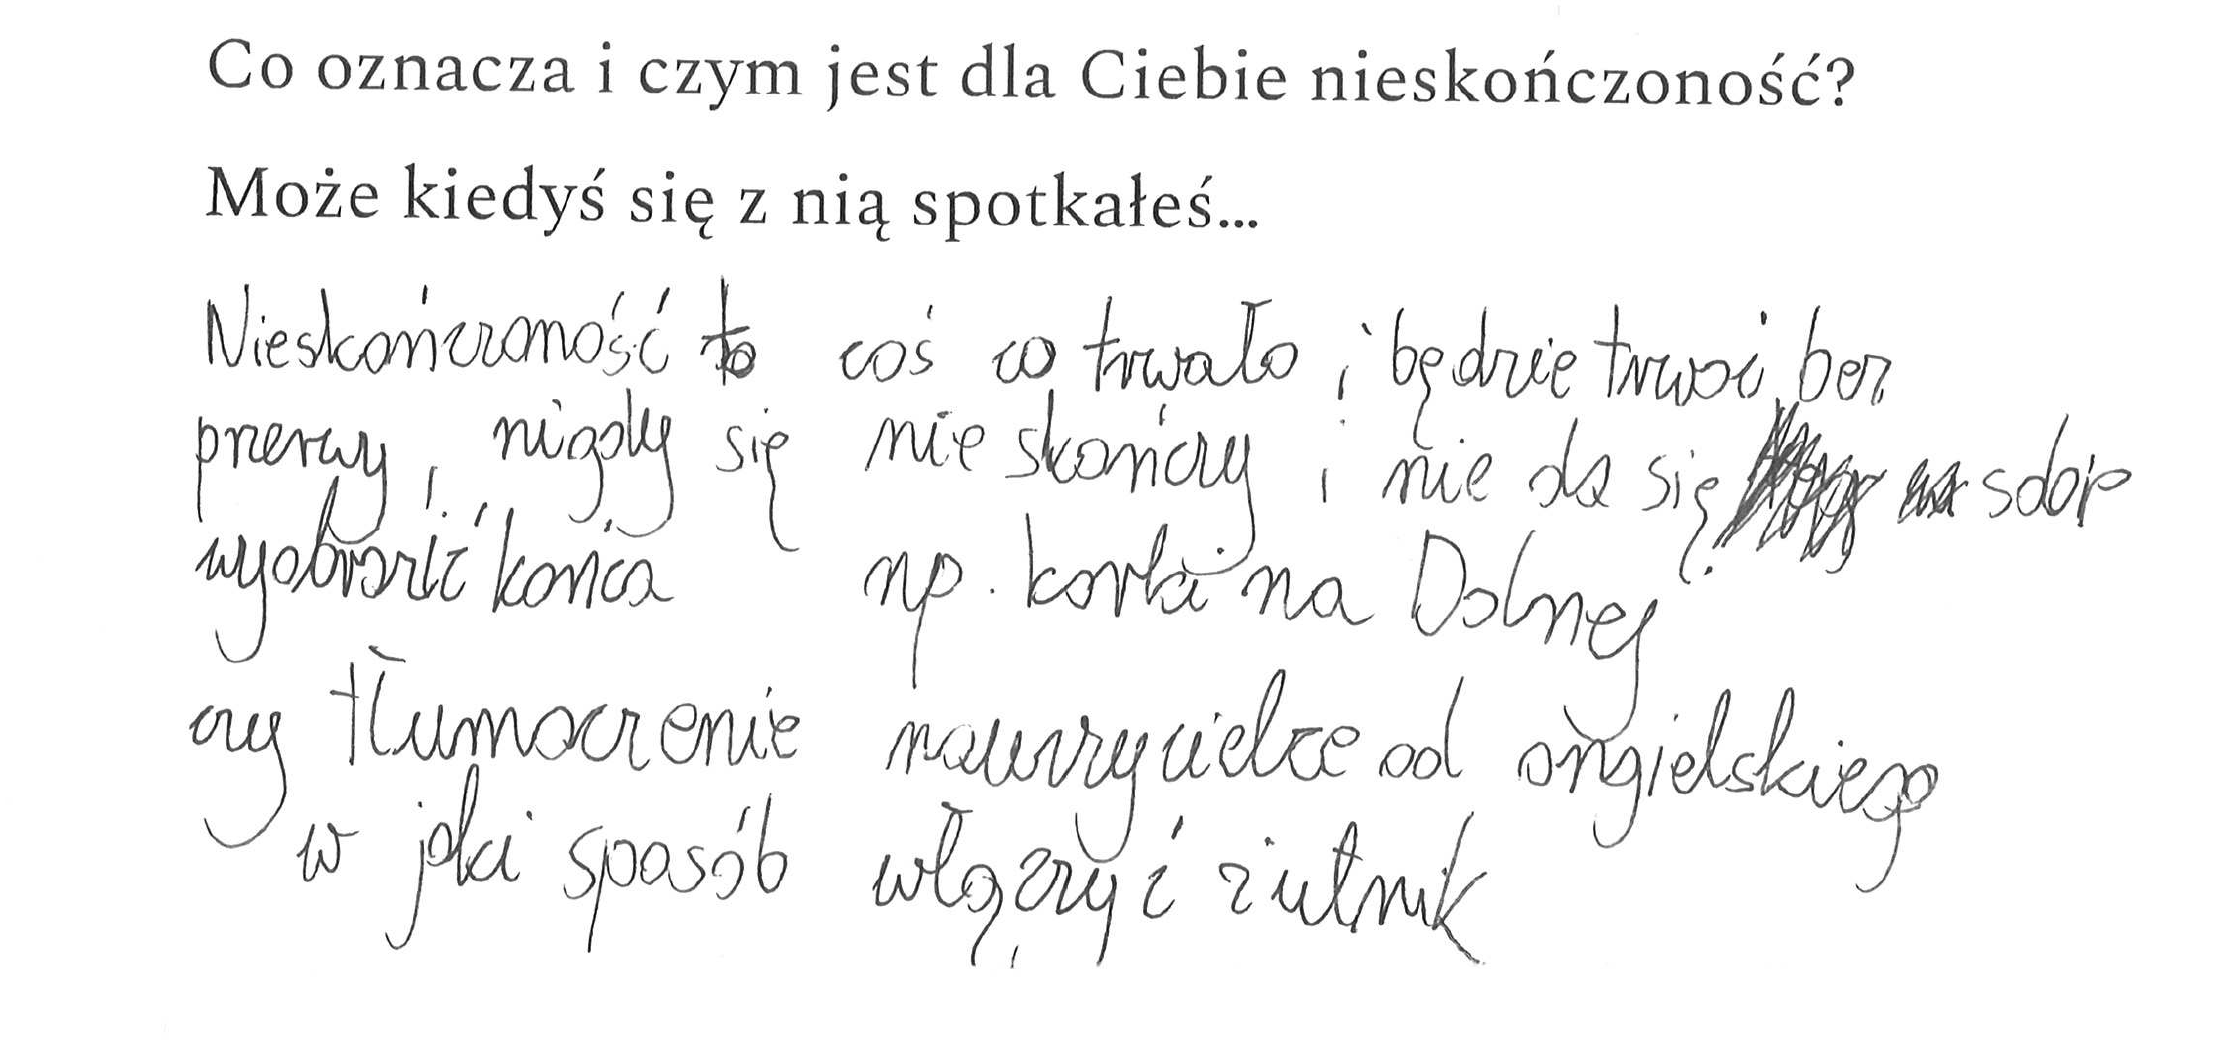 Co oznacza i czym jest dla Ciebie nieskończoność?
Może kiedyś się z nią spotkałeś...
Nieskończoność to coś co trwało i będzie trwać bez
przerwy, nigdy się nie skończy i nie da się sobie
wyobrazić końca np. korki na Dolnej
czy tłumaczenie nauczycielce od angielskiego
w jaki sposób włączyć rzutnik